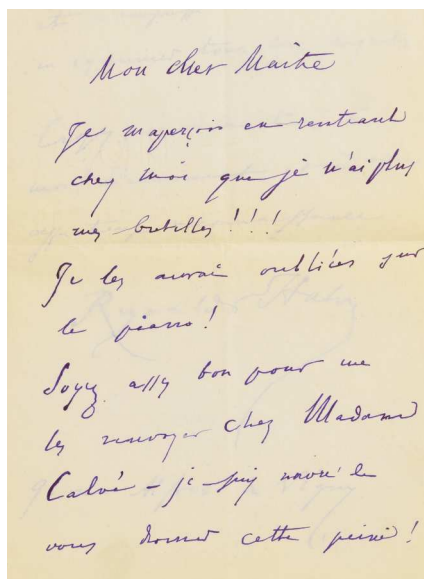 Mon cher Maître
Je m'aperçois en rentrant
chez moi que je n'ai plus
mes bretelles !!!
Je les aurai oubliées sur
le piano !
Soyez assez bon pour me
les renvoyer chez Madame
Calvé – je suis navré de
vous donner cette peine !